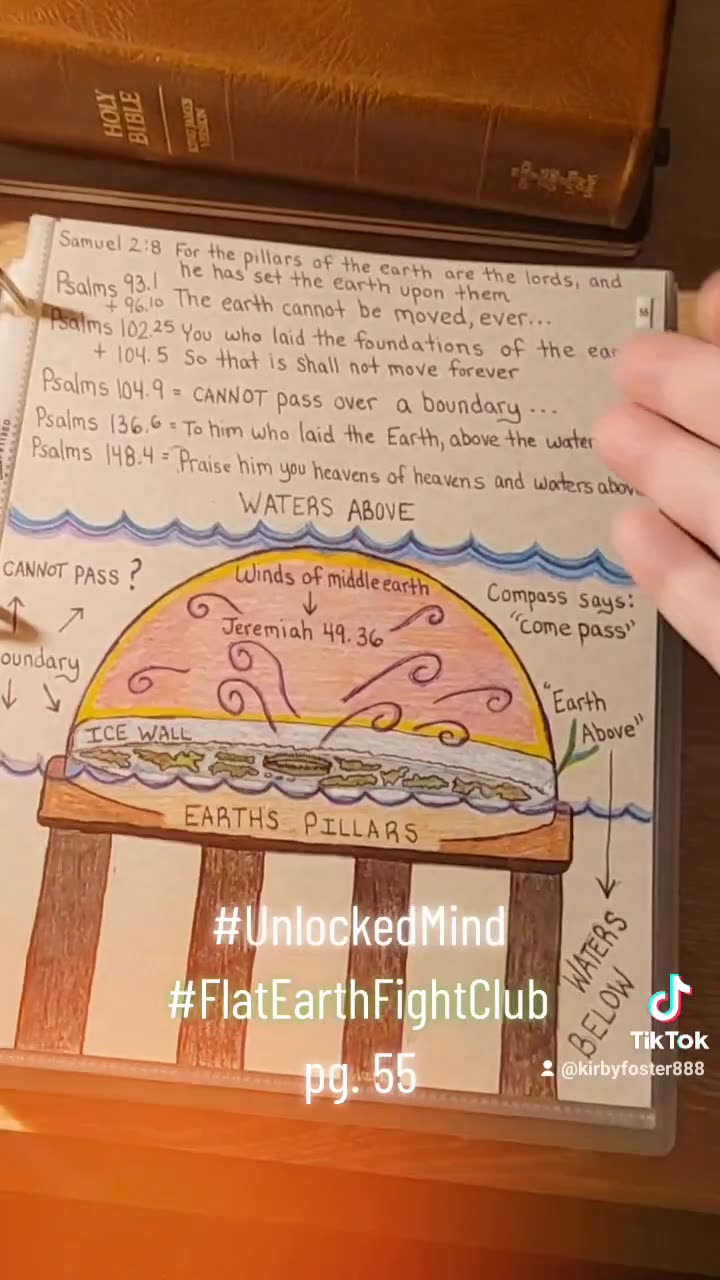 HOLY
BIBLE
Samuel 2:8 For the pillars of the earth are the lords, and
he has set the earth upon them
Psalms 93.1
+ 96.10 The earth cannot be moved, ever...
Psalms 102.25 You who laid the foundations of the ear
+ 104.5 So that is shall not move forever
Psalms 104.9 = CANNOT pass over a boundary...
Psalms 136.6 = To him who laid the Earth, above the water
Psalms 148.4 = Praise him you heavens of heavens and waters above
WATERS ABOVE
CANNOT PASS?
oundary
Winds of middle earth
Jeremiah 49.36
Compass says:
"Come pass"
"Earth
Above"
ICE WALL
EARTHS PILLARS
WATERS
BELOW
55
#UnlockedMind
#FlatEarthFightClub
pg. 55
TikTok
@kirbyfoster888